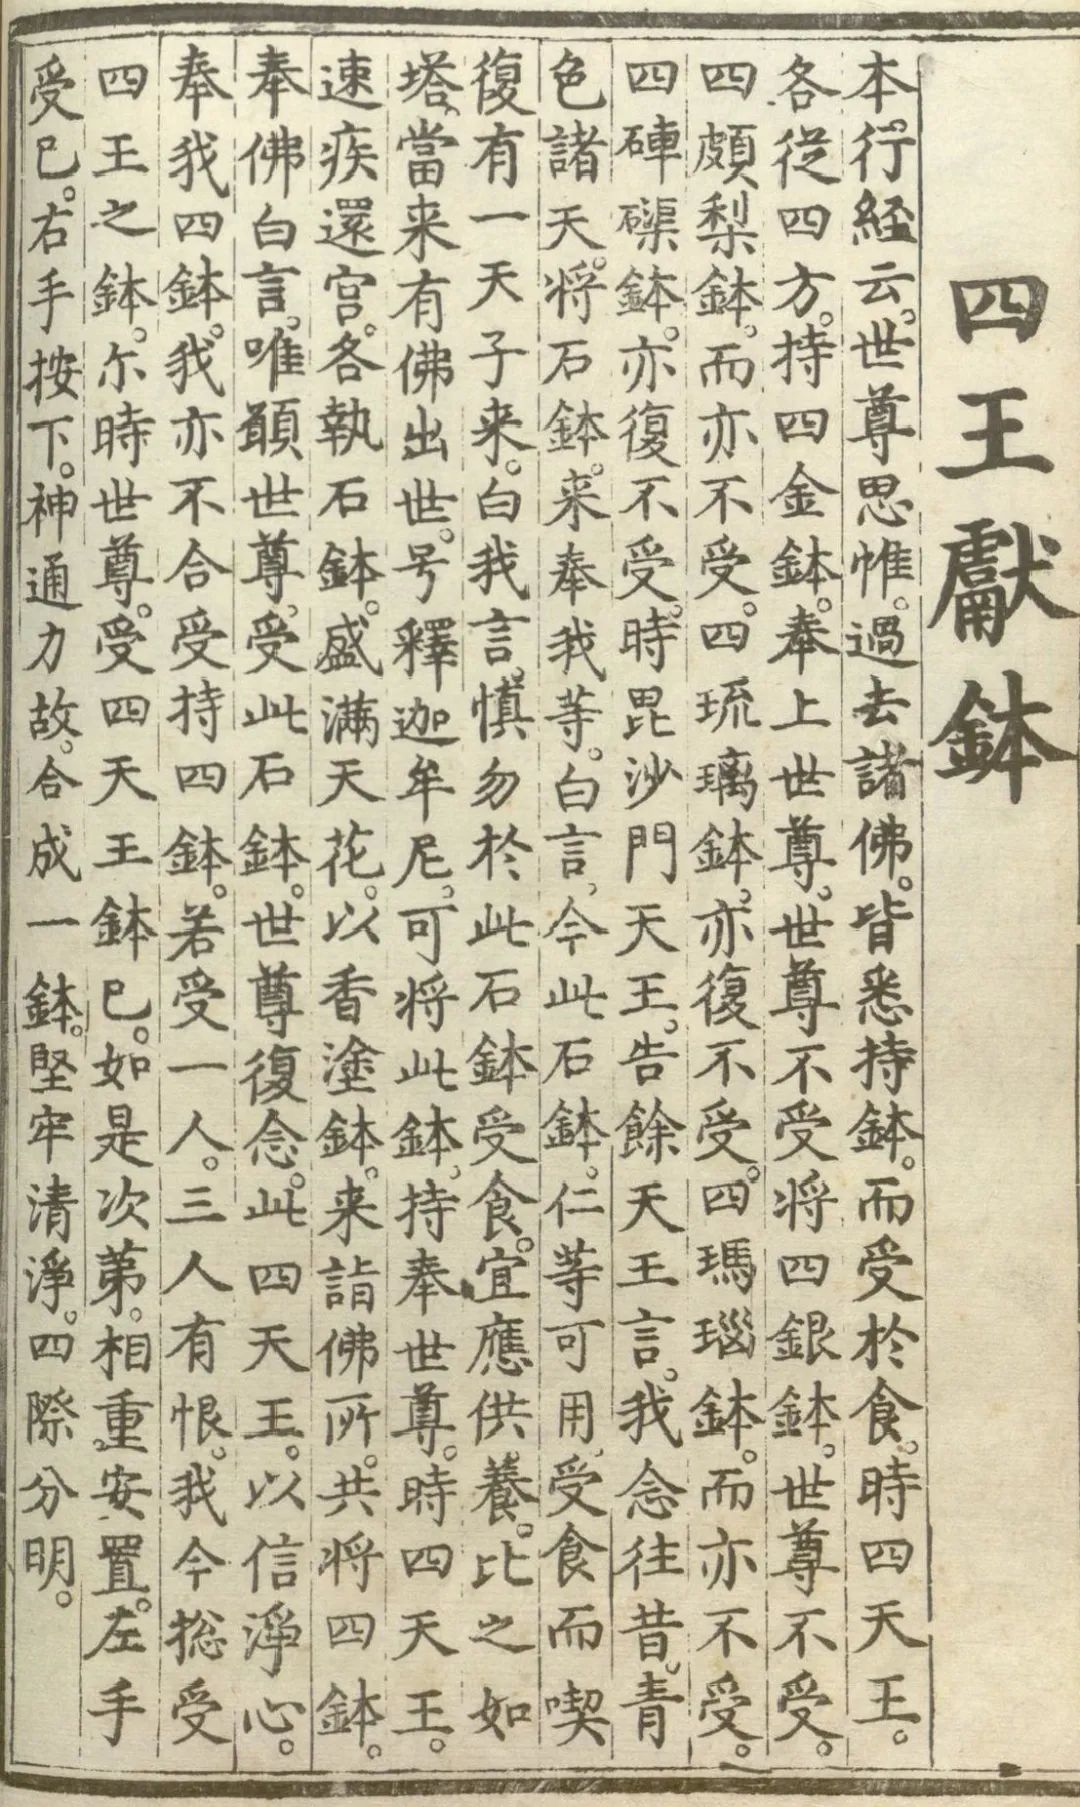 四王獻鉢
本行經云。世尊思惟。過去諸佛。皆悉持鉢。而受於食。時四天王。
各從四方。持四金鉢。奉上世尊。世尊不受。将四銀鉢。世尊不受。
四頗梨鉢。而亦不受。四琉璃鉢。亦復不受。四瑪瑙鉢。而亦不受。
四硨磲鉢。亦復不受。時毘沙門天王。告餘天王言。我念往昔。青
色諸天。将石鉢。来奉我等。白言、今此石鉢。仁等可用、受食而喫
復有一天子来。白我言。慎勿於此石鉢受食。宜應供養。比之如
塔、當来有佛出世。号釋迦牟尼、可将此鉢、持奉世尊。時四天王。
速疾還宮。各執石鉢。盛滿天花。以香塗鉢。来詣佛所。共将四鉢。
奉佛白言。唯願世尊、受此石鉢。世尊復念。此四天王。以信淨心。
奉我四鉢。我亦不合受持四鉢。若受一人。三人有恨。我今捴受
四王之鉢。尔時世尊。受四天王鉢已。如是次苐。相重安置。左手
受已。右手按下。神通力故。合成一鉢。堅牢清淨。四際分明。